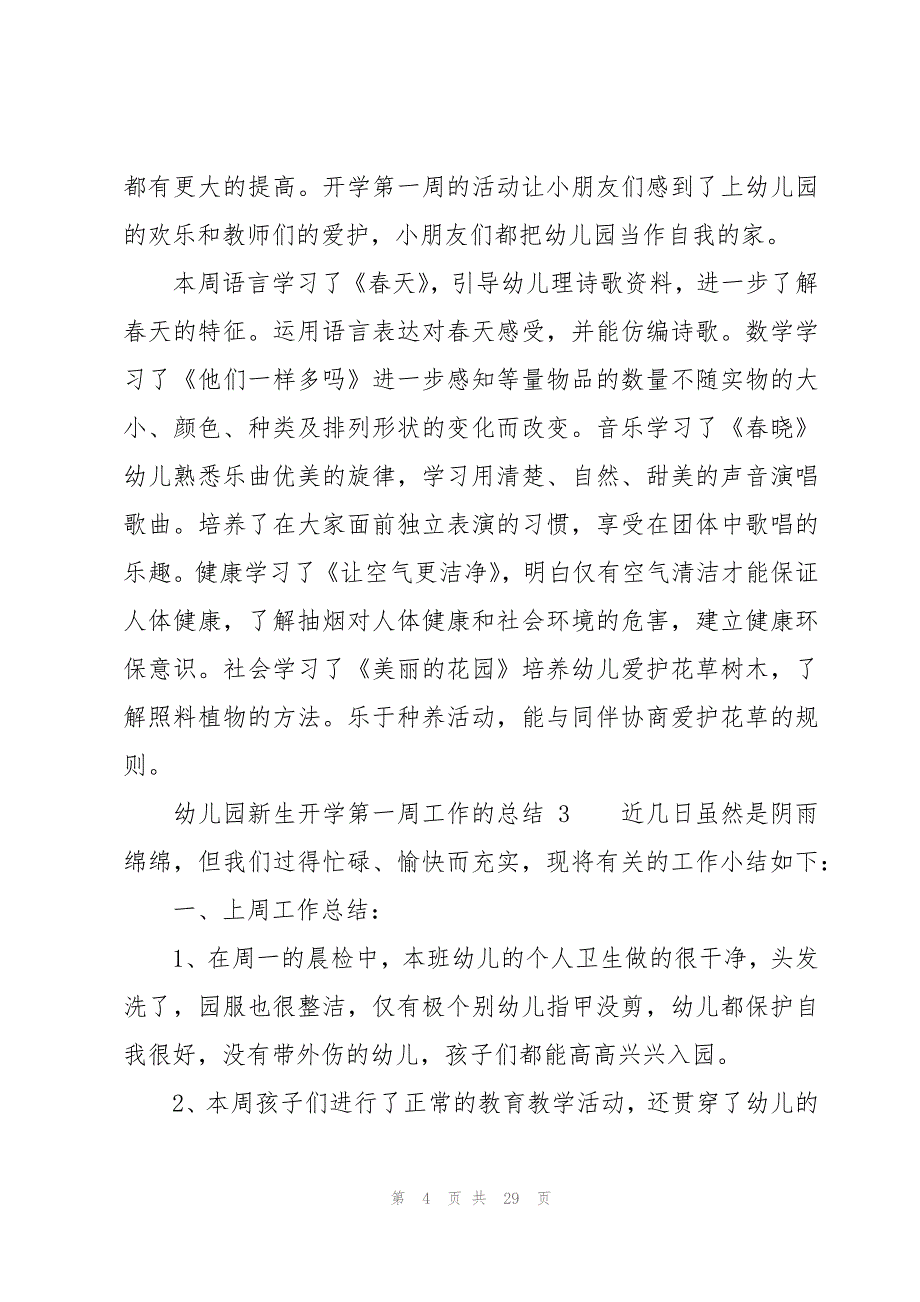 都有更大的提高。开学第一周的活动让小朋友们感到了上幼儿园
的欢乐和教师们的爱护，小朋友们都把幼儿园当作自我的家。
本周语言学习了《春天》，引导幼儿理诗歌资料，进一步了解
春天的特征。运用语言表达对春天感受，并能仿编诗歌。数学学
习了《他们一样多吗》进一步感知等量物品的数量不随实物的大
小、颜色、种类及排列形状的变化而改变。音乐学习了《春晓》
幼儿熟悉乐曲优美的旋律，学习用清楚、自然、甜美的声音演唱
歌曲。培养了在大家面前独立表演的习惯，享受在团体中歌唱的
乐趣。健康学习了《让空气更洁净》，明白仅有空气清洁才能保证
人体健康，了解抽烟对人体健康和社会环境的危害，建立健康环
保意识。社会学习了《美丽的花园》培养幼儿爱护花草树木，了
解照料植物的方法。乐于种养活动，能与同伴协商爱护花草的规
则。
幼儿园新生开学第一周工作的总结 3　　近几日虽然是阴雨
绵绵，但我们过得忙碌、愉快而充实，现将有关的工作小结如下：
一、上周工作总结：
1、在周一的晨检中，本班幼儿的个人卫生做的很干净，头发
洗了，园服也很整洁，仅有极个别幼儿指甲没剪，幼儿都保护自
我很好，没有带外伤的幼儿，孩子们都能高高兴兴入园。
2、本周孩子们进行了正常的教育教学活动，还贯穿了幼儿的
第 4 页 共 29 页